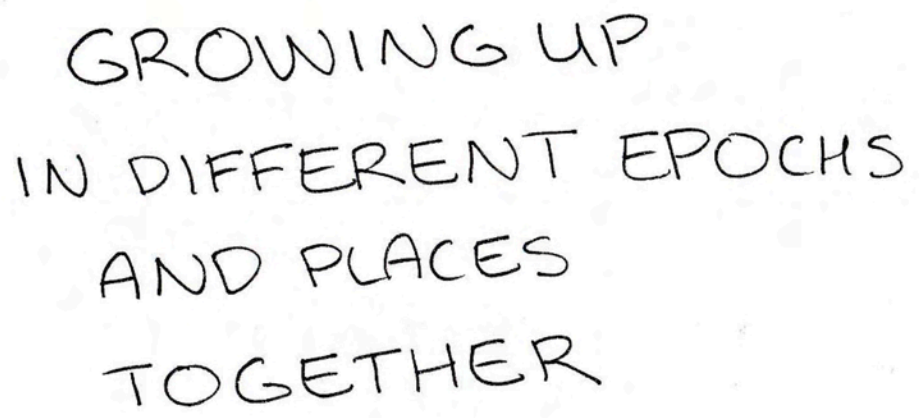 GROWING UP
IN DIFFERENT EPOCHS
AND PLACES
TOGETHER